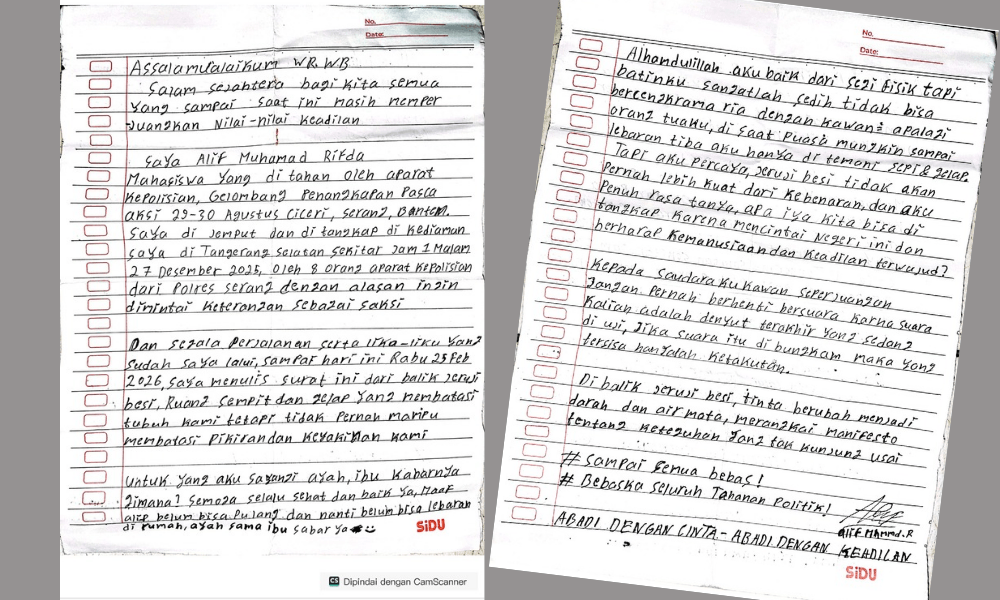 No.
Date:
Assalamualaikum WR WB
Salam sejahtera bagi kita semua
Yang sampai saat ini masih memper
Juangkan Nilai-nilai Keadilan
Saya Alif Muhamad Rifda
Mahasiswa Yang di tahan oleh aparat
Kepolisian, Gelombang Penangkapan Pasca
aksi 29-30 Agustus Ciceri, Serang, Banten.
Saya di Jemput dan di tangkap di Kediaman
saya di Tangerang Selatan sekitar Jam 1 Malam
27 Desember 2025, oleh 8 orang aparat Kepolisian
dari Polres serang dengan alasan ingin
dimintai Keterangan sebagai saksi
Dan segala Perjalanan serta lika-liku Yang
sudah saya lalui, sampai hari ini Rabu 25 Feb
2026, saya menulis surat ini dari balik Jeruji
besi, Ruang Sempit dan gelap Yang membatasi
tubuh kami tetapi tidak Pernah mampu
membatasi Pikiran dan Keyakinan kami
Untuk Yang aku sayangi ayah, ibu Kabarnya
gimana? Semoga selalu sehat dan baik Ya, Maaf
alip belum bisa Pulang dan nanti belum bisa lebaran
di rumah, ayah sama ibu sabar ya
SiDU
CS Dipindai dengan CamScanner
No.
Date:
Alhamdulillah aku baik dari segi fisik tapi
batinku sangatlah sedih tidak bisa
bercengkrama ria dengan kawan² apalagi
orang tuaku, di saat Puasa mungkin sampai
lebaran tiba aku hanya di temani sepi & gelap.
Tapi aku Percaya, Jeruji besi tidak akan
Pernah lebih kuat dari Kebenaran, dan aku
Penuh rasa tanya, apa iya kita bisa di
tangkap karena mencintai Negeri ini dan
berharap Kemanusiaan dan Keadilan terwujud?
Kepada Saudara Ku Kawan Seperjuangan
Jangan Pernah berhenti bersuara karna suara
Kalian adalah denyut terakhir Yang sedang
di uji, Jika suara itu di bungkam maka Yang
tersisa hanyalah Ketakutan.
Di balik Jeruji besi, tinta berubah menjadi
darah dan air mata, merangkai manifesto
tentang Keteguhan Yang tak kunjung usai
# Sampai Semua bebas!
# Bebaska Seluruh Tahanan Politik!
Alif Mahmd. R
ABADI DENGAN CINTA - ABADI DENGAN KEADILAN
SiDU